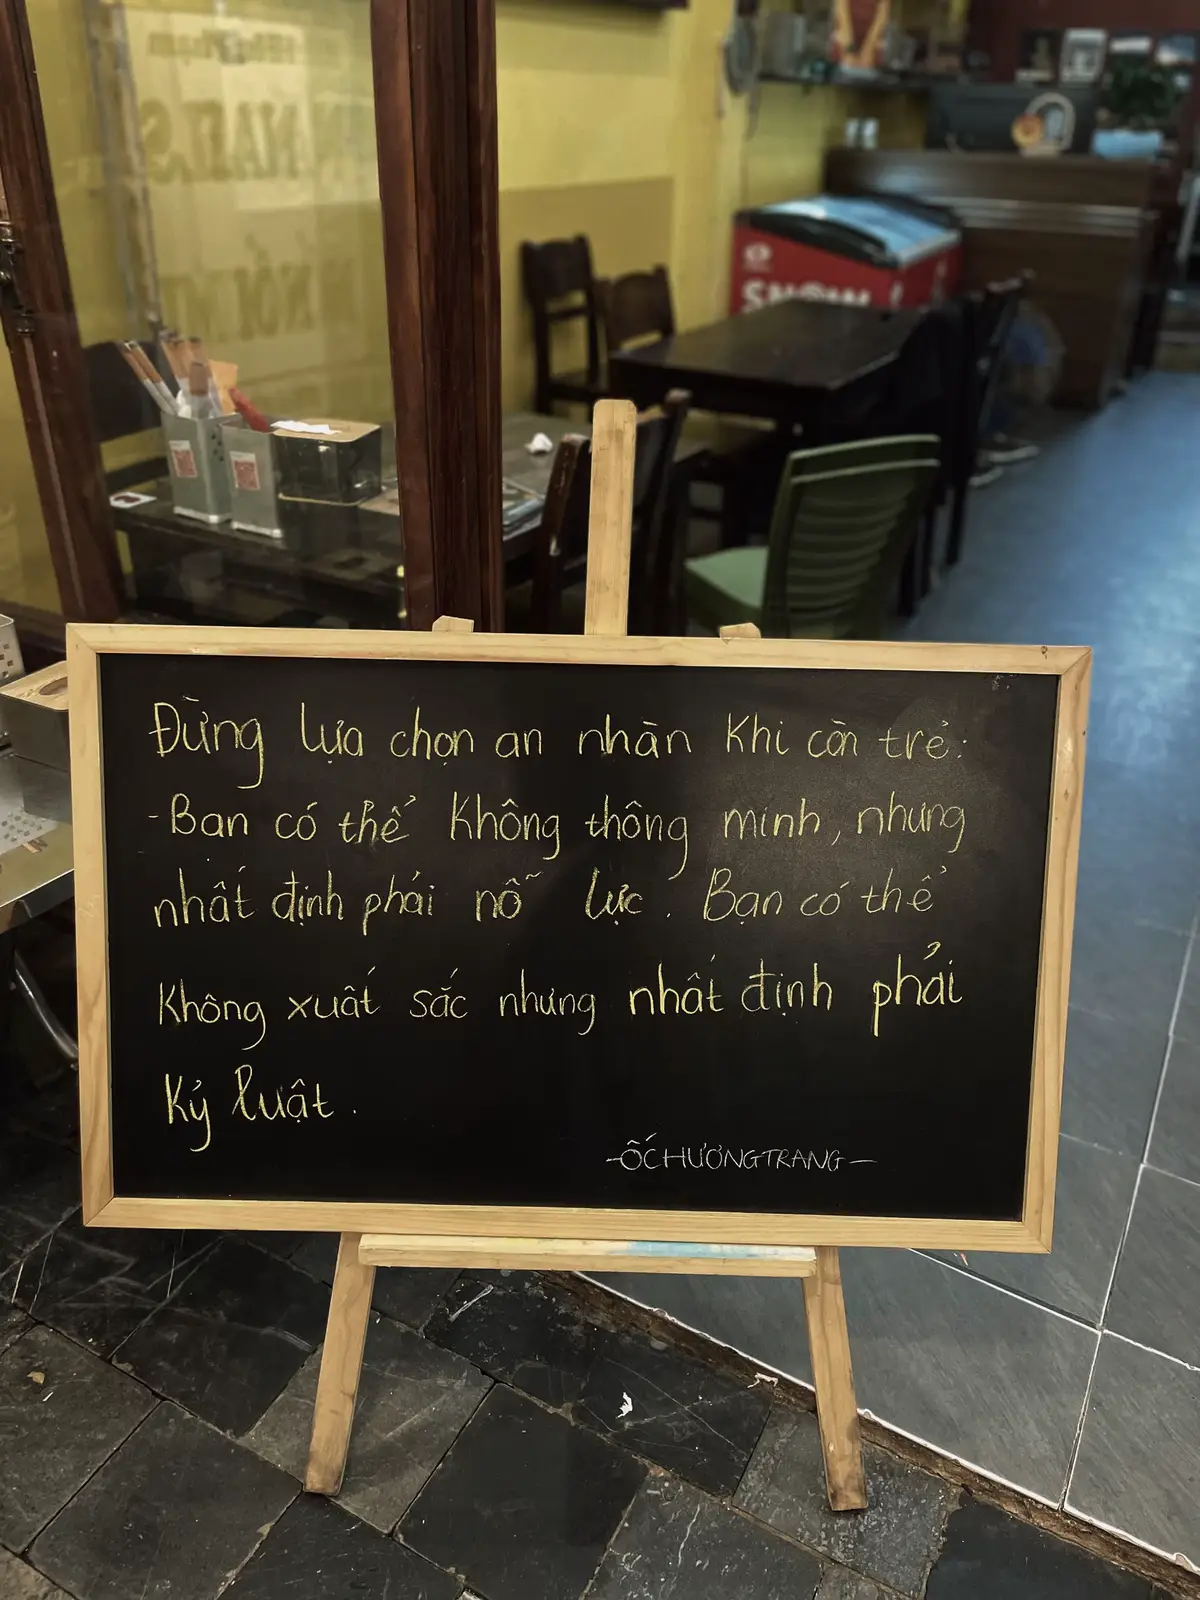 Đừng lựa chọn an nhàn khi còn trẻ:
- Bạn có thể không thông minh, nhưng
nhất định phải nỗ lực. Bạn có thể
không xuất sắc nhưng nhất định phải
kỷ luật.
-ỐCHƯƠNGTRANG-
SNOW